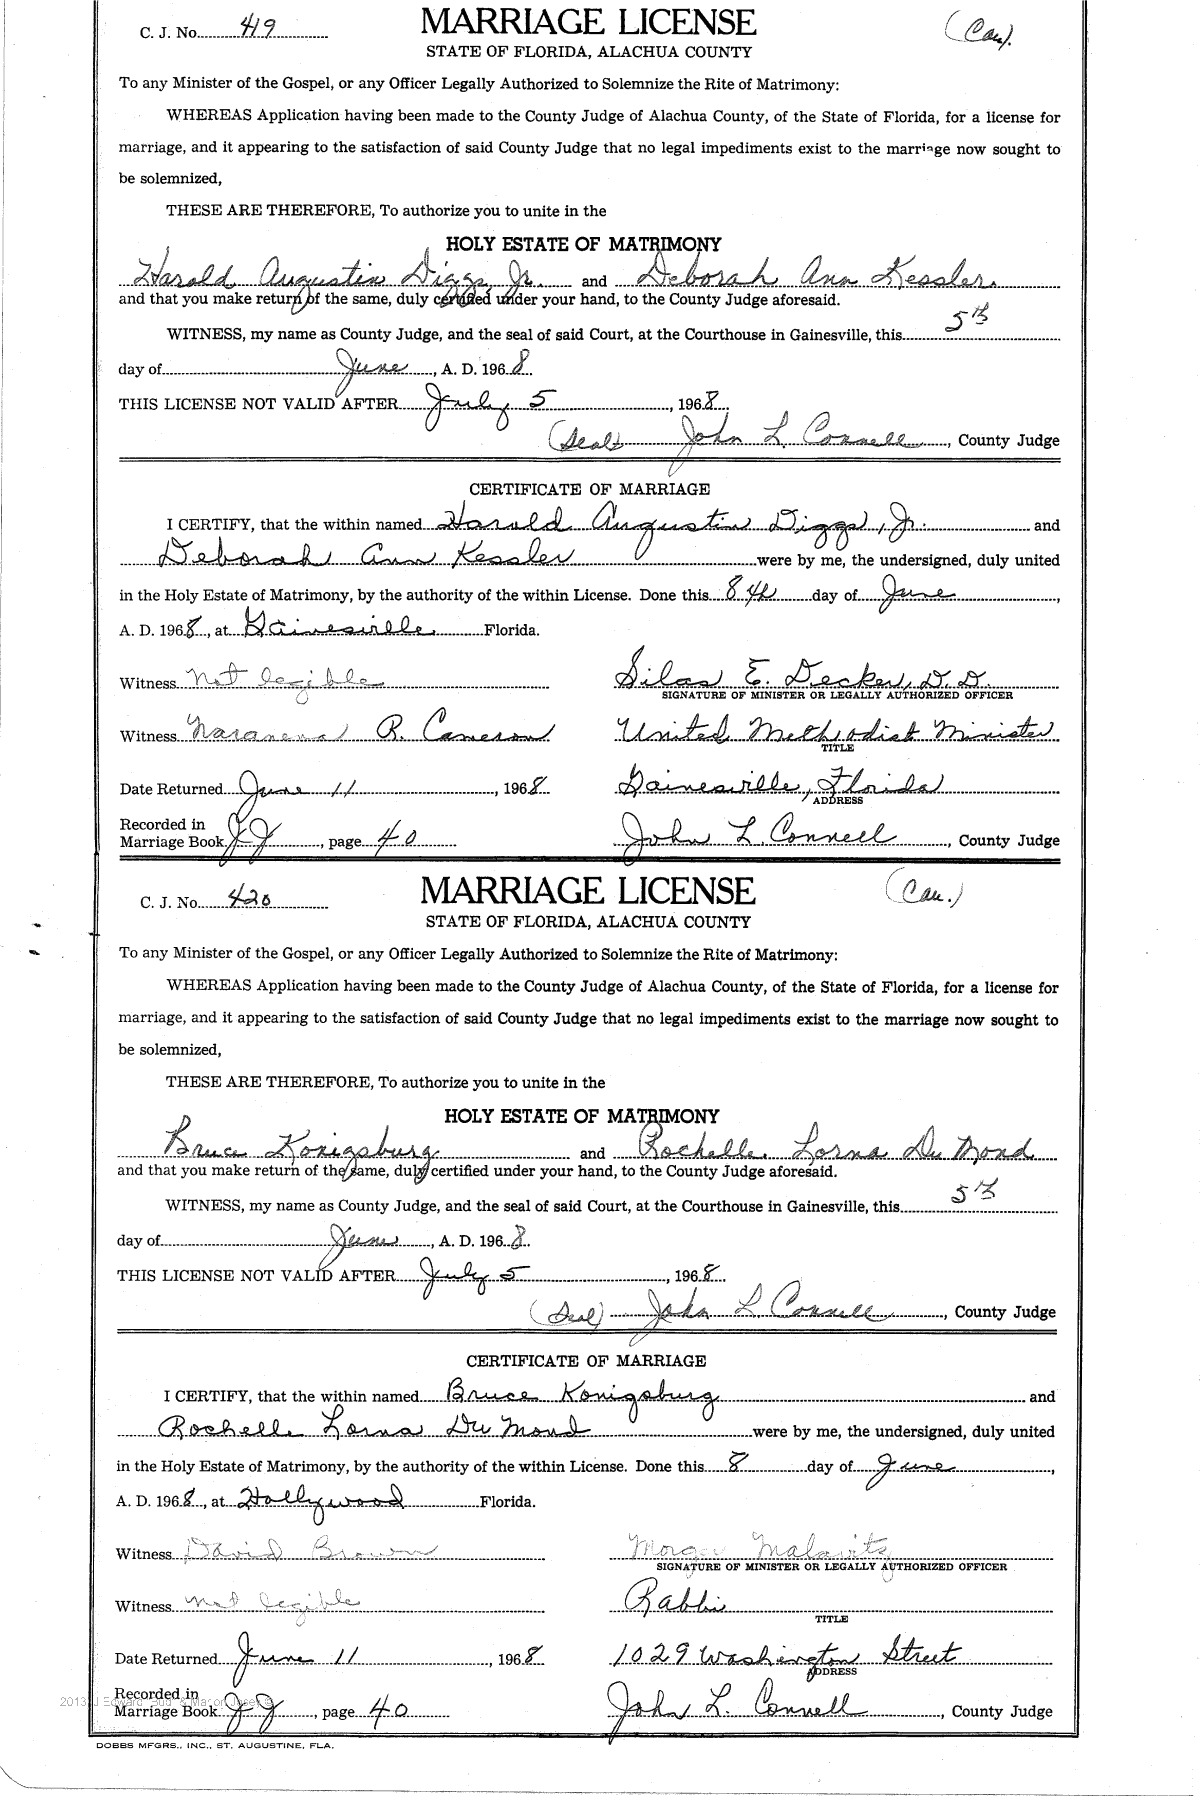 C. J. No. 419 MARRIAGE LICENSE (Cau).
STATE OF FLORIDA, ALACHUA COUNTY
To any Minister of the Gospel, or any Officer Legally Authorized to Solemnize the Rite of Matrimony:
WHEREAS Application having been made to the County Judge of Alachua County, of the State of Florida, for a license for
marriage, and it appearing to the satisfaction of said County Judge that no legal impediments exist to the marriage now sought to
be solemnized,
THESE ARE THEREFORE, To authorize you to unite in the
HOLY ESTATE OF MATRIMONY
Harold Augustin Diggs, Jr. and Deborah Ann Kessler
and that you make return of the same, duly certified under your hand, to the County Judge aforesaid.
WITNESS, my name as County Judge, and the seal of said Court, at the Courthouse in Gainesville, this 5th
day of June, A. D. 1968.
THIS LICENSE NOT VALID AFTER July 5, 1968.
(Seal) John L. Connell, County Judge
CERTIFICATE OF MARRIAGE
I CERTIFY, that the within named Harold Augustin Diggs, Jr. and
Deborah Ann Kessler were by me, the undersigned, duly united
in the Holy Estate of Matrimony, by the authority of the within License. Done this 8th day of June,
A. D. 1968, at Gainesville Florida.
Witness not legible Silas E. Decker, D.D.
SIGNATURE OF MINISTER OR LEGALLY AUTHORIZED OFFICER
Witness R. Cameron United Methodist Minister
TITLE
Date Returned June 11, 1968. Gainesville, Florida
ADDRESS
Recorded in
Marriage Book JJ, page 40 John L. Connell, County Judge
C. J. No. 420 MARRIAGE LICENSE (Cau.)
STATE OF FLORIDA, ALACHUA COUNTY
To any Minister of the Gospel, or any Officer Legally Authorized to Solemnize the Rite of Matrimony:
WHEREAS Application having been made to the County Judge of Alachua County, of the State of Florida, for a license for
marriage, and it appearing to the satisfaction of said County Judge that no legal impediments exist to the marriage now sought to
be solemnized,
THESE ARE THEREFORE, To authorize you to unite in the
HOLY ESTATE OF MATRIMONY
Bruce Konigsburg and Rochelle Lorna Du Mond
and that you make return of the same, duly certified under your hand, to the County Judge aforesaid.
WITNESS, my name as County Judge, and the seal of said Court, at the Courthouse in Gainesville, this 5th
day of June, A. D. 1968.
THIS LICENSE NOT VALID AFTER July 5, 1968.
(Seal) John L. Connell, County Judge
CERTIFICATE OF MARRIAGE
I CERTIFY, that the within named Bruce Konigsburg and
Rochelle Lorna Du Mond were by me, the undersigned, duly united
in the Holy Estate of Matrimony, by the authority of the within License. Done this 8 day of June,
A. D. 1968, at Hollywood Florida.
Witness David Brown Malavitz
SIGNATURE OF MINISTER OR LEGALLY AUTHORIZED OFFICER
Witness not legible Rabbi
TITLE
Date Returned June 11, 1968 1029 Washington Street
ADDRESS
Recorded in
Marriage Book JJ, page 40 John L. Connell, County Judge
DOBBS MFGRS., INC., ST. AUGUSTINE, FLA.